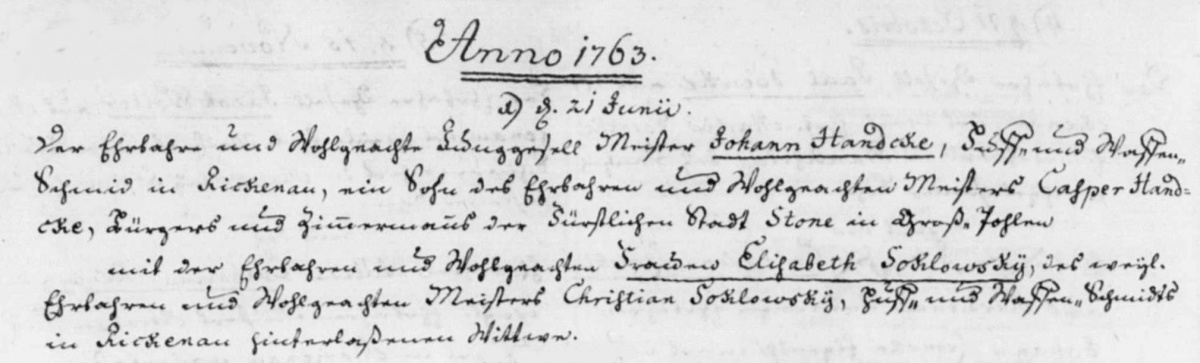 Anno 1763.
1) d. 21 Junii.
Der Ehrbahre und Wohlgeachte Junggesell Meister Johann Handcke, Huff- und Waffen-
Schmid in Rickenau, ein Sohn des Ehrbahren und Wohlgeachten Meisters Casper Hand-
cke, Bürgers und Zimmermans der Fürstlichen Stadt Stone in Groß-Pohlen
mit der Ehrbahren und Wohlgeachten Frauen Elisabeth Soklowsky, des weyl.
Ehrbahren und Wohlgeachten Meisters Christian Soklowsky, Huff- und Waffen-Schmidts
in Rickenau hinterlaßenen Wittwe.